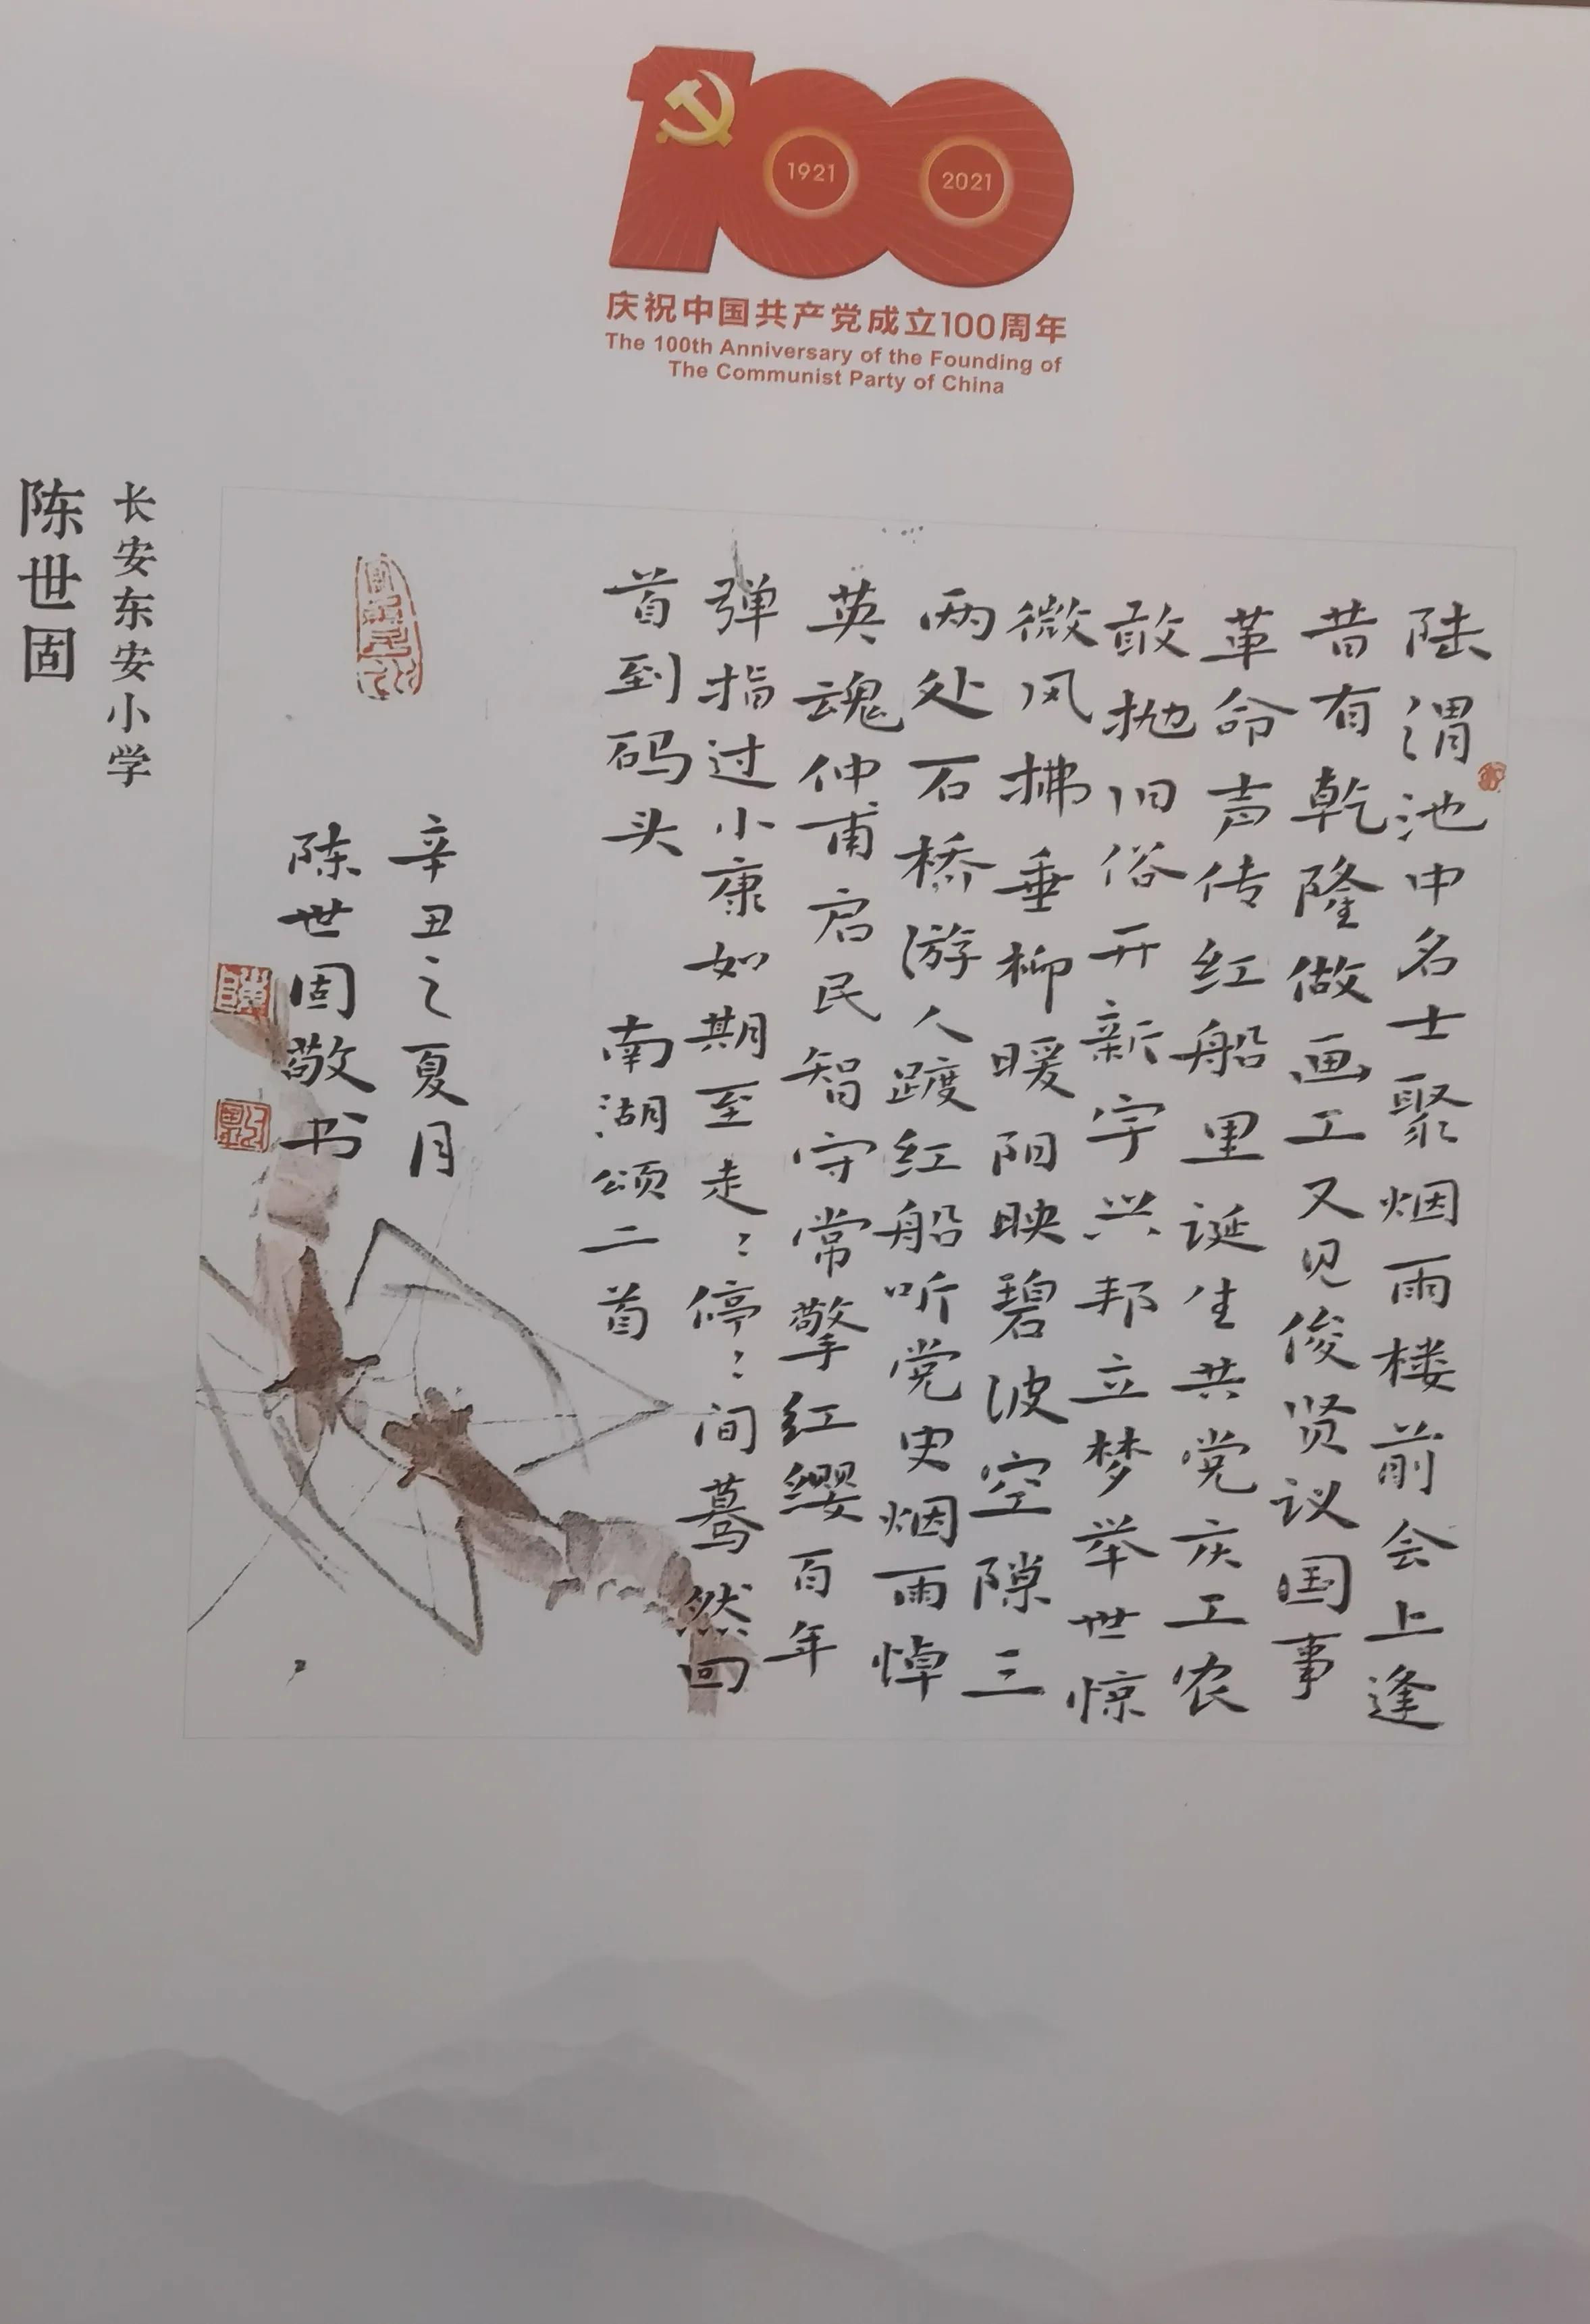 1921
2021
庆祝中国共产党成立100周年
The 100th Anniversary of the Founding of
The Communist Party of China
陆渭池中名士聚烟雨楼前会上逢
昔有乾隆做画工又见俊贤议国事
革命声传红船里诞生共党庆工农
敢抛旧俗开新宇兴邦立梦举世惊
微风拂垂柳暖阳映碧波空隙三
两处石桥游人踱红船听党史烟雨悼
英魂仲甫启民智守常擎红缨百年
弹指过小康如期至走:停:间蓦然回
首到码头 南湖颂二首
辛丑之夏月
陈世固敬书
长安东安小学
陈世固